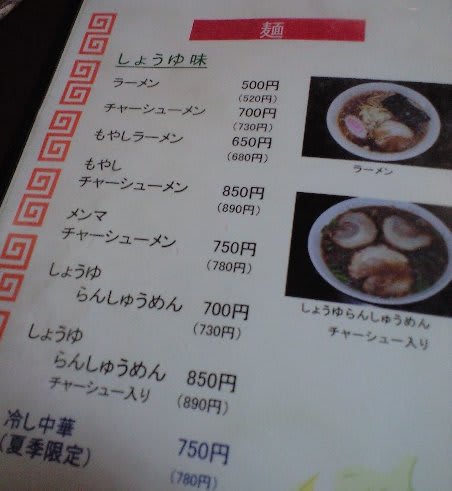 麺
しょうゆ味
ラーメン 500円
(520円)
チャーシューメン 700円
(730円)
もやしラーメン 650円
(680円)
もやし
チャーシューメン 850円
(890円)
メンマ
チャーシューメン 750円
(780円)
しょうゆ
らんしゅうめん 700円
(730円)
しょうゆ
らんしゅうめん 850円
チャーシュー入り (890円)
冷し中華 750円
(夏季限定) (780円)
ラーメン
しょうゆらんしゅうめん
チャーシュー入り